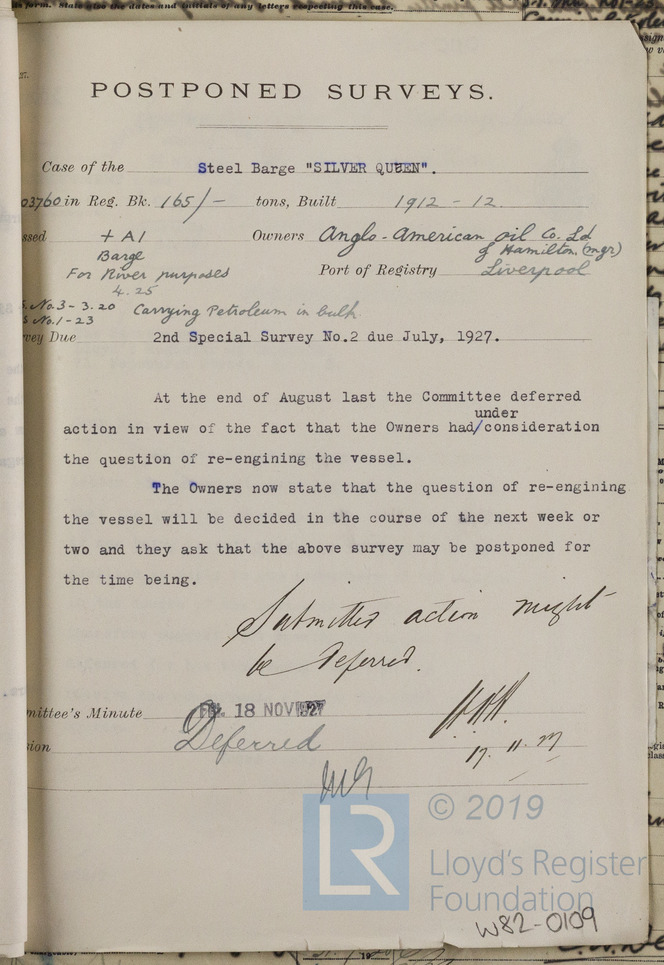 s form. State also the dates and initials of any letters respecting this case.
27.
POSTPONED SURVEYS.
Case of the Steel Barge "SILVER QUEEN".
03760 in Reg. Bk. 165/- tons, Built 1912 - 12
ssed + A1 Owners Anglo-American Oil Co. Ld
Barge G Hamilton (mgr)
For River purposes Port of Registry Liverpool
4.25
S. No.3 - 3.20 Carrying Petroleum in bulk
S No.1 - 23
vey Due 2nd Special Survey No.2 due July, 1927.
At the end of August last the Committee deferred
under
action in view of the fact that the Owners had/consideration
the question of re-engining the vessel.
The Owners now state that the question of re-engining
the vessel will be decided in the course of the next week or
two and they ask that the above survey may be postponed for
the time being.
Submitted action might
be deferred.
mittee's Minute FRI. 18 NOV 1927
sion Deferred
17.11.27
LR
© 2019
Lloyd's Register
Foundation
W82-0109